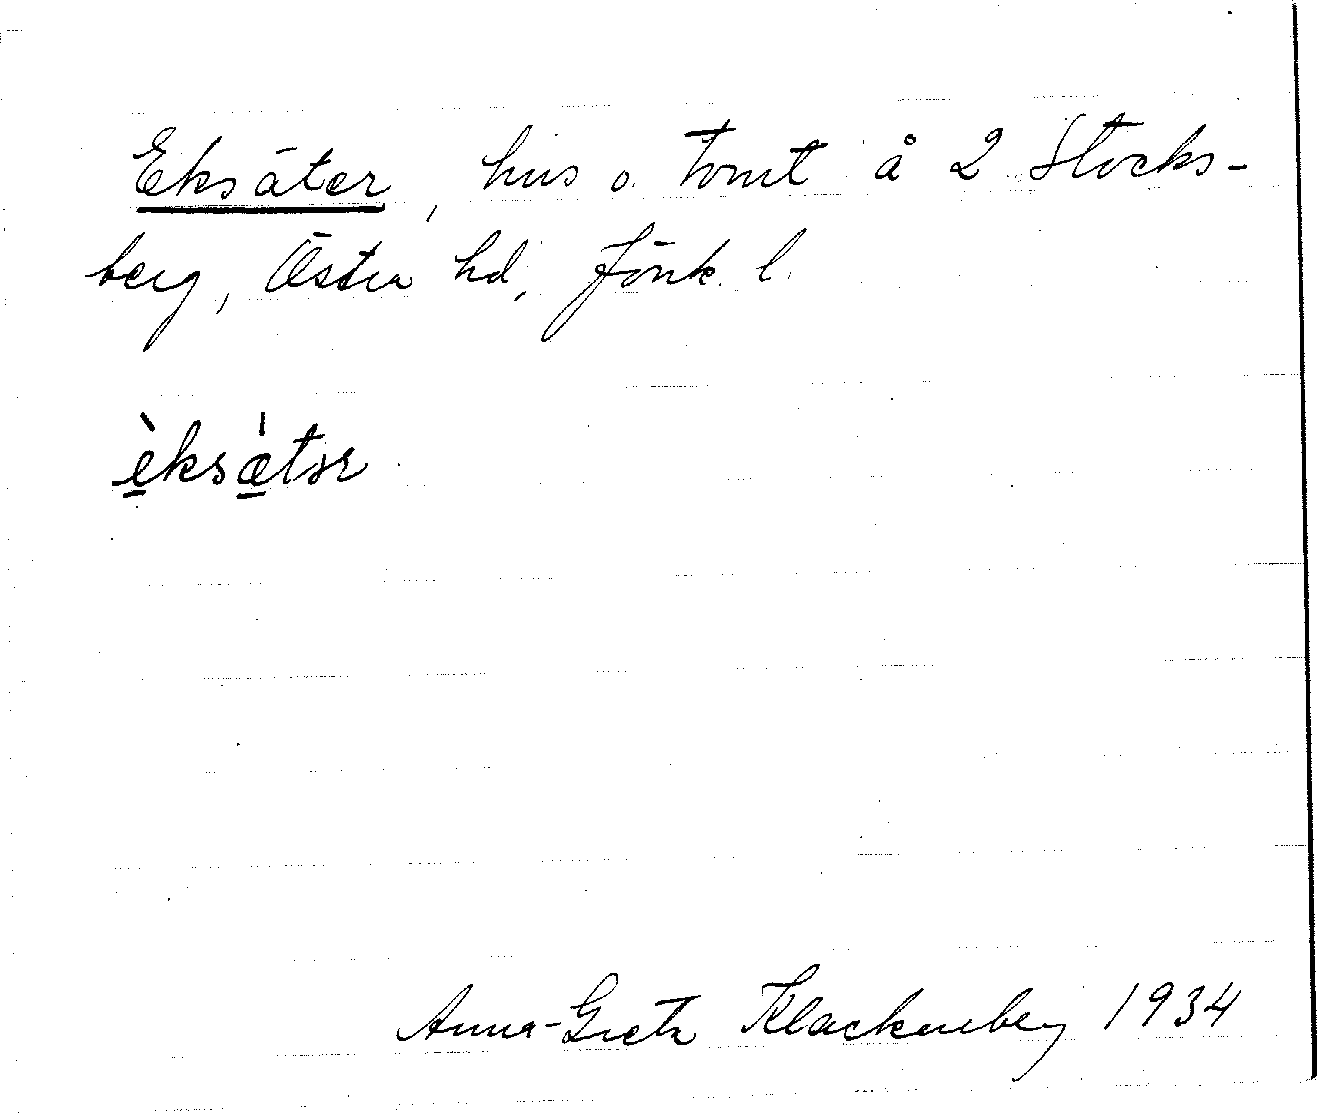 Eksäter, hus o. tomt å 2 Stocks-
berg, Östra hd, Jönk. l.
è̲ksæ̲̍tər
Anna-Greta Klackenberg 1934